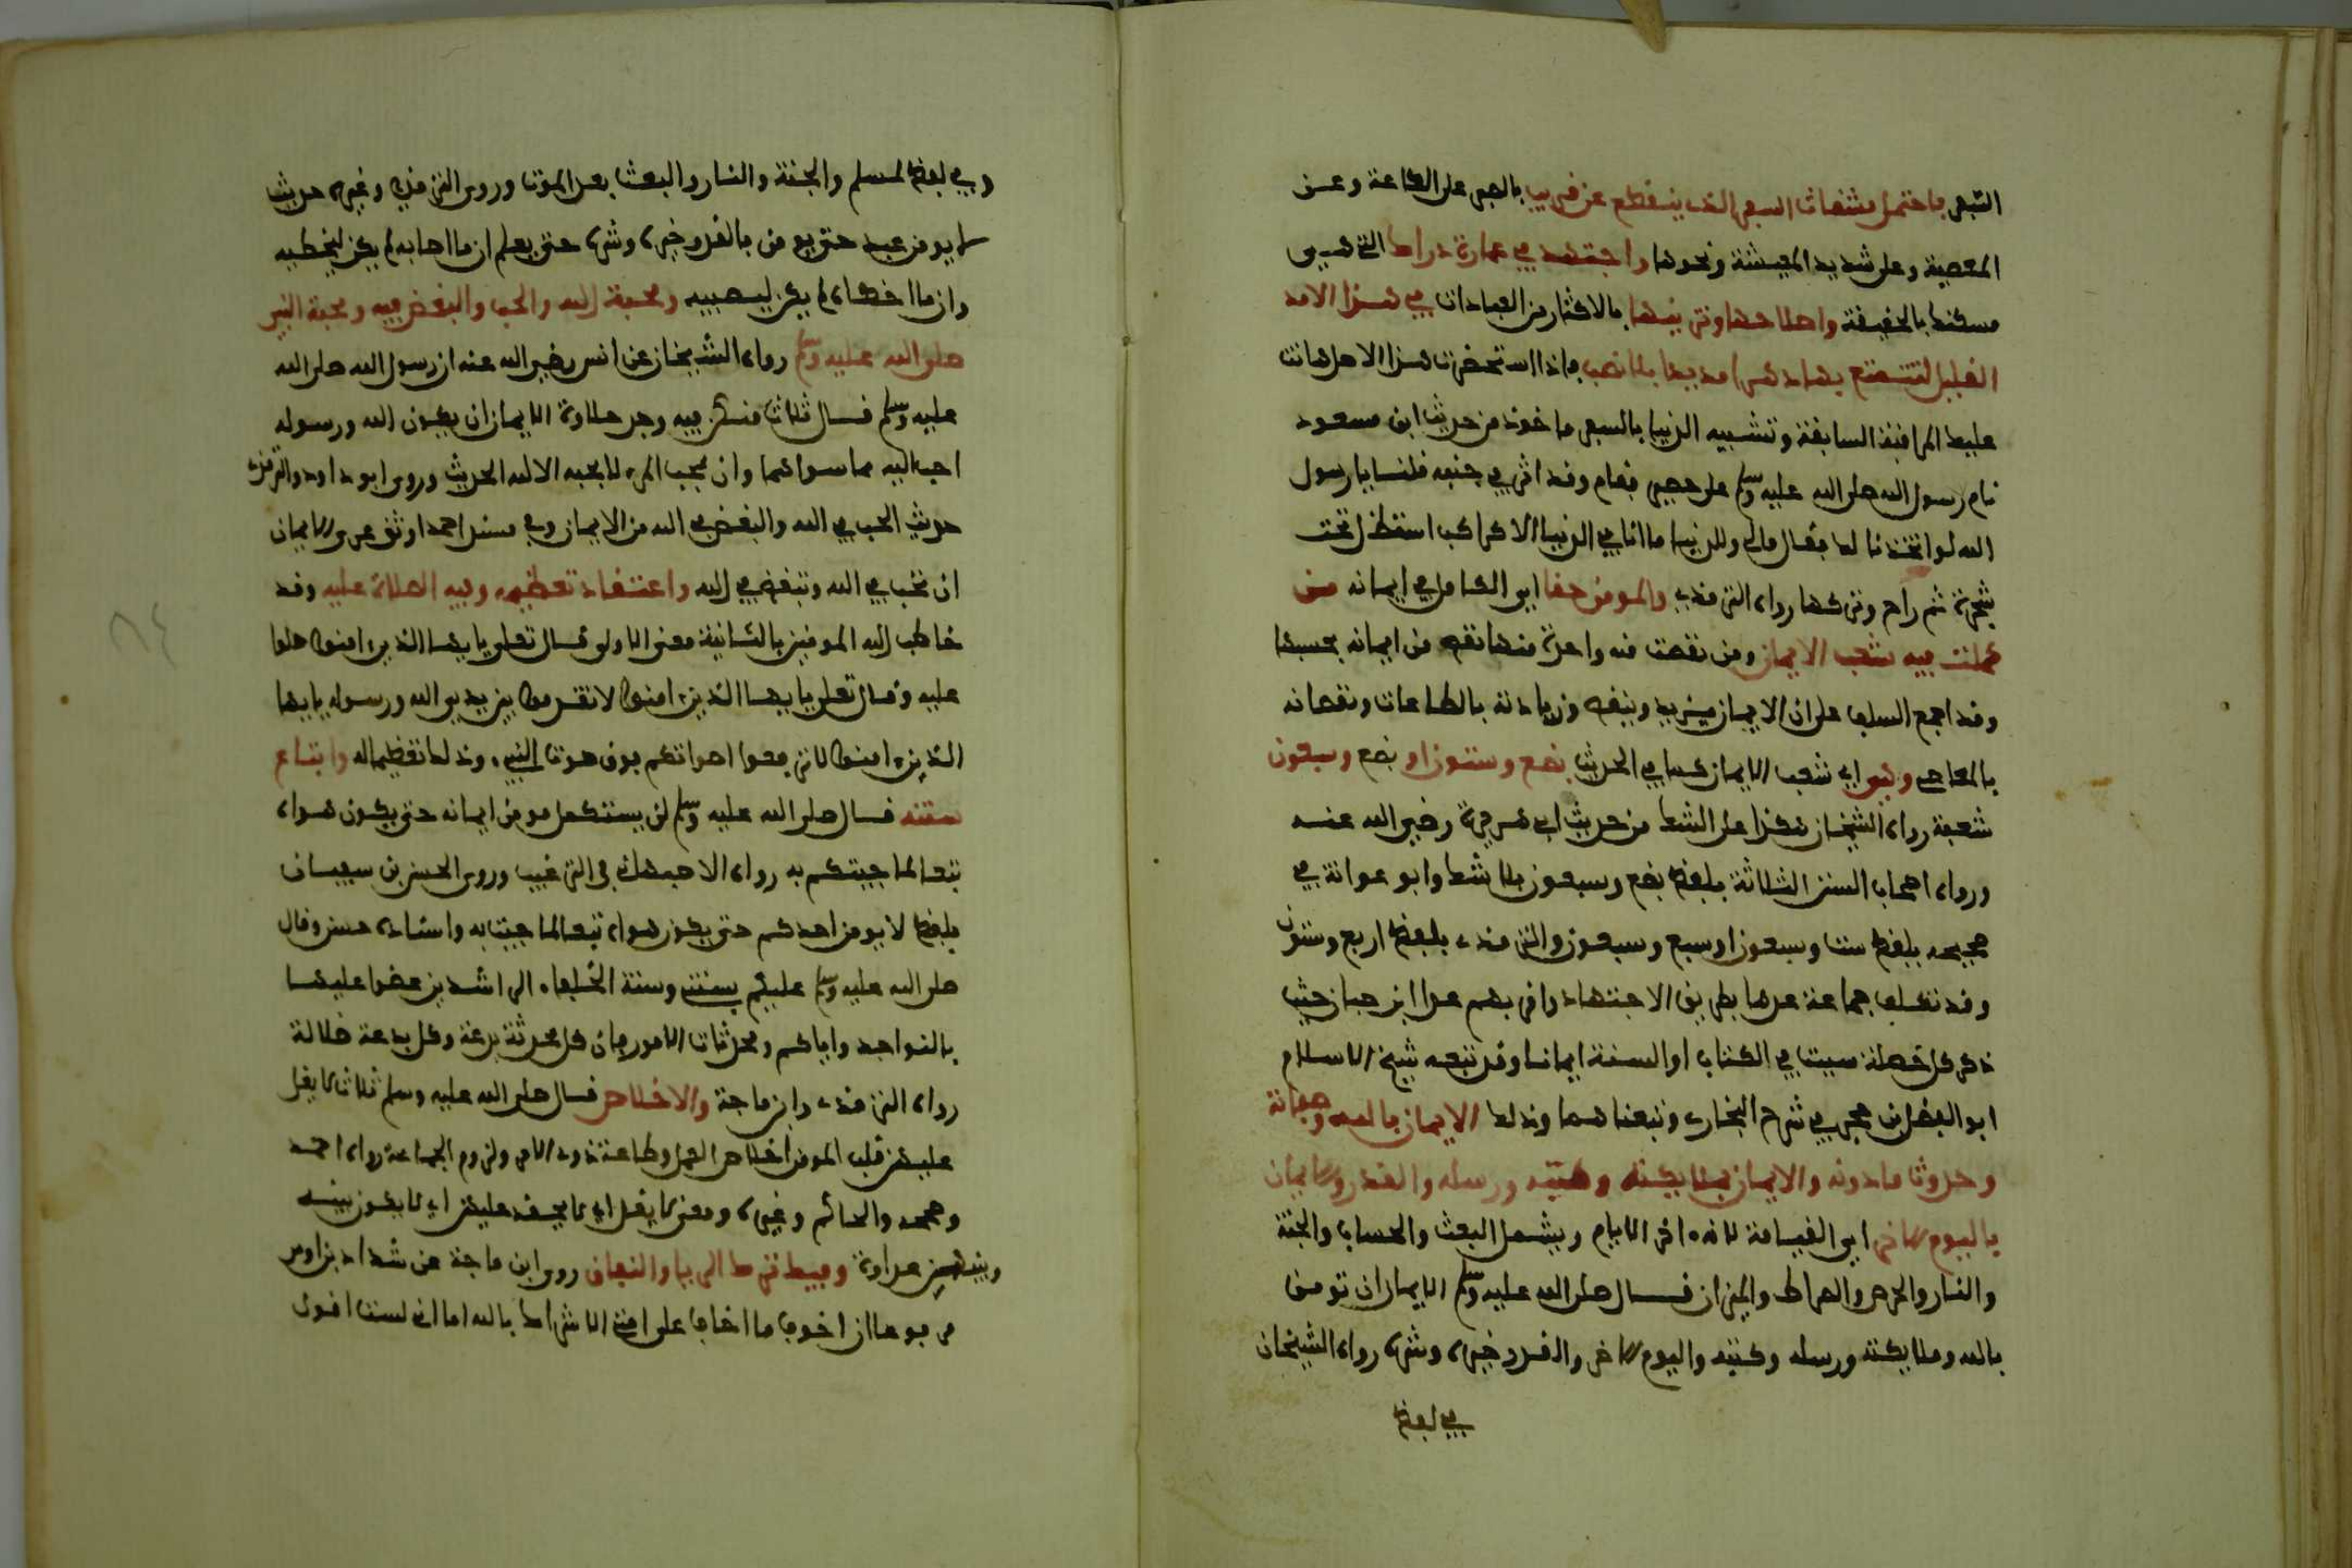 السّفر فاحتمل مشقات السفر الذي ينقطع عن قريب بالصبر على الطاعة وعن
المعصية وعلى شديد المعيشة ونحوها واجتهد في عمارة دارك التي هي
مسكنك بالحقيقة واصلاحها وتزيينها بالاكثار من العبادات في هذا الامد
القليل لتتمتع بها دهرا مديدا بلا نصب فاذا استحضرت هذا الاصل هانت
عليك المراقبة السابقة وتشبيه الدنيا بالسفر ماخوذ من حديث ابن مسعود
نام رسول الله صلى الله عليه وسلم على حصير فقام وقد اثر في جنبه قلنا يا رسول
الله لو اتخذنا لك فقال مالي وللدنيا ما انا في الدنيا الا كراكب استظل تحت
شجرة ثم راح وتركها رواه الترمذي والمومن حقا اي الكامل في ايمانه من
كملت فيه شعب الايمان ومن نقصت منه واحدة منها نقص من ايمانه بحسبها
وقد اجمع السلف على ان الايمان يزيد وينقص وزيادته بالطاعات ونقصانه
بالمعاصي وهي اي شعب الايمان كما في الحديث بضع وستون او بضع وسبعون
شعبة رواه الشيخان هكذا على الشك من حديث ابي هريرة رضي الله عنه
ورواه اصحاب السنن الثلاثة بلفظ بضع وسبعون بلا شك وابو عوانة في
صحيحه بلفظ ست وسبعون او سبع وسبعون والترمذي بلفظ اربع وستون
وقد تكلف جماعة عدها بطريق الاجتهاد واقربهم عدا ابن حبان حيث
ذكر كل خصلة سميت في الكتاب او السنة ايمانا وقد تبعه شيخ الاسلام
ابو الفضل ابن حجر في شرح البخاري وتبعناهما وذلك الايمان بالله وصفاته
وحدوث ما دونه والايمان بملايكته وكتبه ورسله والقدر والايمان
باليوم الاخر اي القيامة لانه اخر الايام ويشمل البعث والحساب والجنة
والنار والحوض والصراط والميزان قال صلى الله عليه وسلم الايمان ان تومن
بالله وملايكته ورسله وكتبه واليوم الاخر والقدر خيره وشره رواه الشيخان
في لفظ
وفي لفظ لمسلم والجنة والنار والبعث بعد الموت وروى الترمذي وغيره حديث
لا يومن عبد حتى يومن بالقدر خيره وشره حتى يعلم ان ما اصابه لم يكن ليخطيه
وان ما اخطاه لم يكن ليصيبه ومحبة الله والحب والبغض فيه ومحبة النبي
صلى الله عليه وسلم رواه الشيخان عن انس رضي الله عنه ان رسول الله صلى الله
عليه وسلم قال ثلاث من كن فيه وجد حلاوة الايمان ان يكون الله ورسوله
احب اليه مما سواهما وان يحب المرء لا يحبه الا لله الحديث وروى ابو داود والترمذي
حديث الحب في الله والبغض في الله من الايمان وفي مسند احمد اوثق عرى الايمان
ان تحب في الله وتبغض في الله واعتقاد تعظيمه وفيه الصلاة عليه وقد
خاطب الله المومنين بالثانية معنى الاولى قال تعلى يا يها الذين امنوا صلوا
عليه وقال تعلى يا يها الذين امنوا لا تقدموا بين يدي الله ورسوله يا يها
الذين امنوا لا ترفعوا اصواتكم فوق صوت النبي وذلك تعظيما له واتباع
سنته قال صلى الله عليه وسلم لن يستكمل مومن ايمانه حتى يكون هواه
تبعا لما جيتكم به رواه الاصبهاني في الترغيب وروى الحسن بن سفيان
بلفظ لا يومن احدكم حتى يكون هواه تبعا لما جيت به واسناده حسن وقال
صلى الله عليه وسلم عليكم بسنتي وسنة الخلفاء الراشدين عضوا عليها
بالنواجد واياكم ومحدثات الامور فان كل محدثة بدعة وكل بدعة ضلالة
رواه الترمذي وابن ماجة والاخلاص قال صلى الله عليه وسلم ثلاث لا يغل
عليهن قلب المومن اخلاص العمل وطاعة ذوي الامر ولزوم الجماعة رواه احمد
وصححه والحاكم وغيره ومعنى لا يغل اي لا يحقد عليهن اي لا يكون بينه
وبينهن عداوة وفيه ترك الريا والنفاق روى ابن ماجة عن شداد بن اوس
مرفوعا ان اخوف ما اخاف على امتي الاشراك بالله اما اني لست اقول